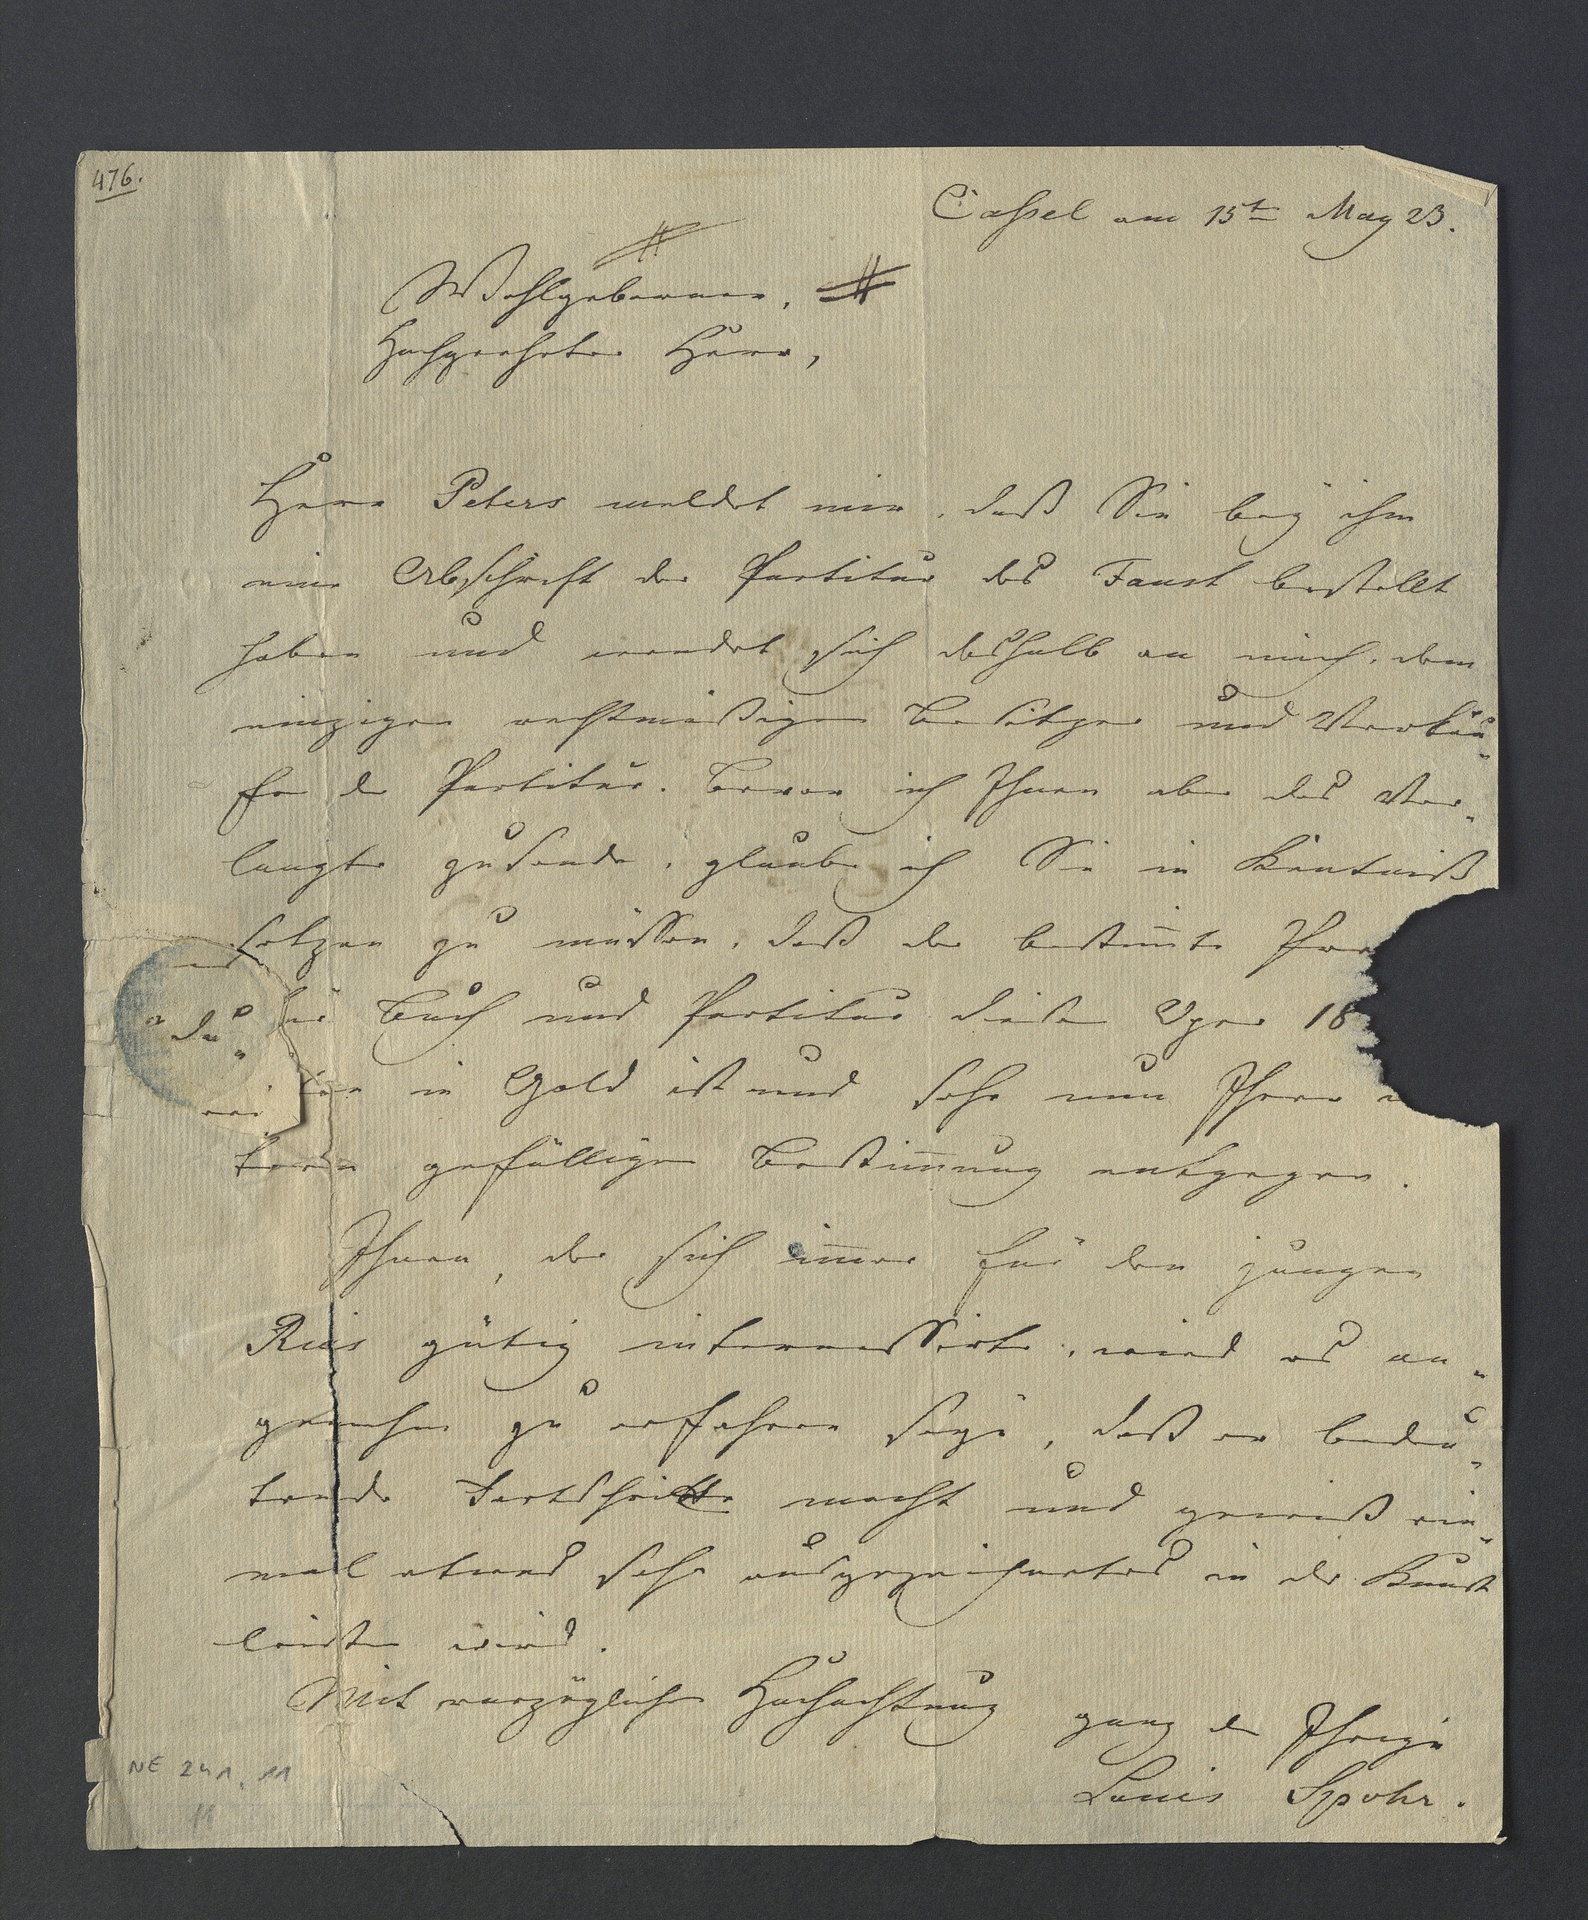 476.
Cassel am 15ten May 23.
Wohlgeborner,
Hochgeehrter Herr,
Herr Peters meldet mir, daß Sie bey ihm
eine Abschrift der Partitur des Faust bestellt
haben und wendet sich deshalb an mich, dem
einzigen rechtmäßigen Besitzer und Verkäu-
fer der Partitur. Bevor ich Ihnen aber das Ver-
langte zusende, glaube ich Sie in Kentniß
setzen zu müssen, daß der bestimte
für Buch und Partitur dieser Oper 18
in Gold ist und sehe nun Ihrer
gefälligen Bestimmung entgegen.
Ihnen, der sich immer für den jungen
Ries gütig interressirte, wird es an-
genehm zu erfahren seyn, daß er bedeu-
tende Fortschritte macht und gewiß ein-
mal etwas sehr ausgezeichnetes in der Kunst
leisten wird.
Mit vorzüglicher Hochachtung ganz der Ihrige
Louis Spohr.
NE 241, 11
11